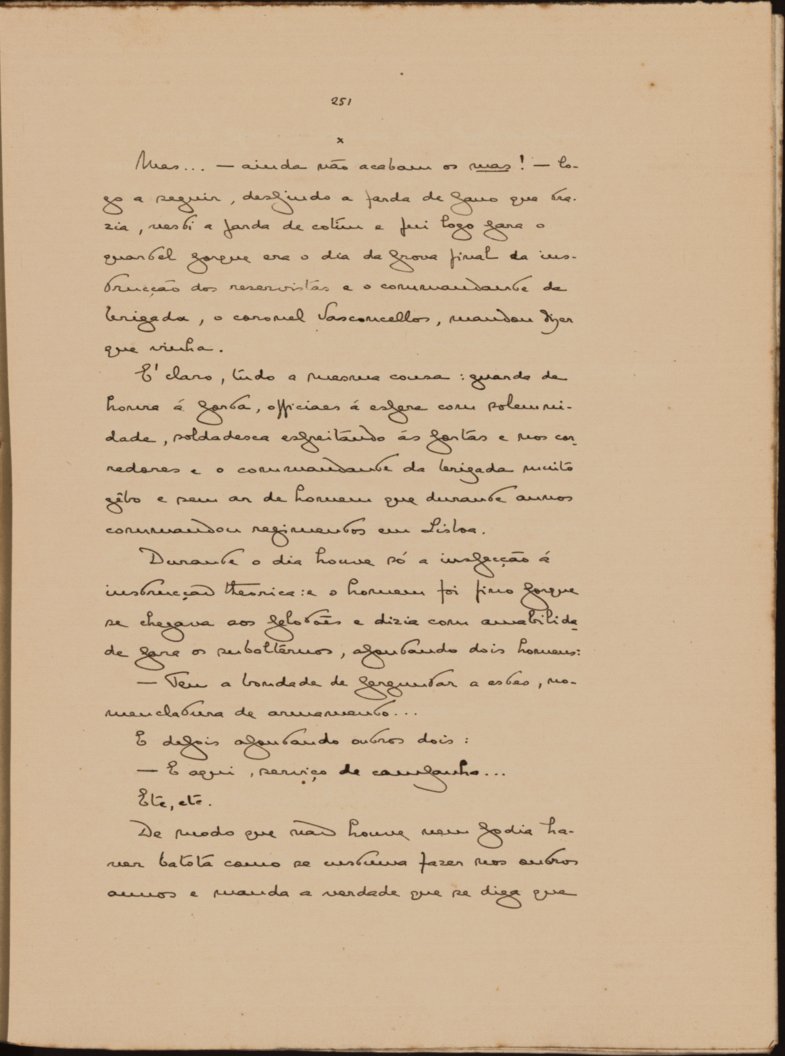 251
x
Mas... — ainda não acabam os mas! — lo-
go a seguir, despindo a farda de pano que tra-
zia, vesti a farda de cotim e fui logo para o
quartel porque era o dia da prova final da ins-
trucção dos reservistas e o commandante da
brigada, o coronel Vasconcellos, mandou dizer
que vinha.
E' claro, tudo a mesma cousa: guarda de
honra á porta, officiaes á espera com solemni-
dade, soldadesca espreitando ás portas e nos cor-
redores e o commandante da brigada muito
gêbo e sem ar de homem que durante annos
commandou regimentos em Lisboa.
Durante o dia houve só a inspecção á
instrucção theorica: e o homem foi fino porque
se chegava aos pelotões e dizia com amabilida-
de para os subalternos, apontando dois homens:
— Tem a bondade de perguntar a estes, no-
menclatura de armamento...
E depois apontando outros dois:
— E aqui, serviço de campanha...
Etc, etc.
De modo que não houve nem podia ha-
ver batota como se costuma fazer nos outros
annos e manda a verdade que se diga que